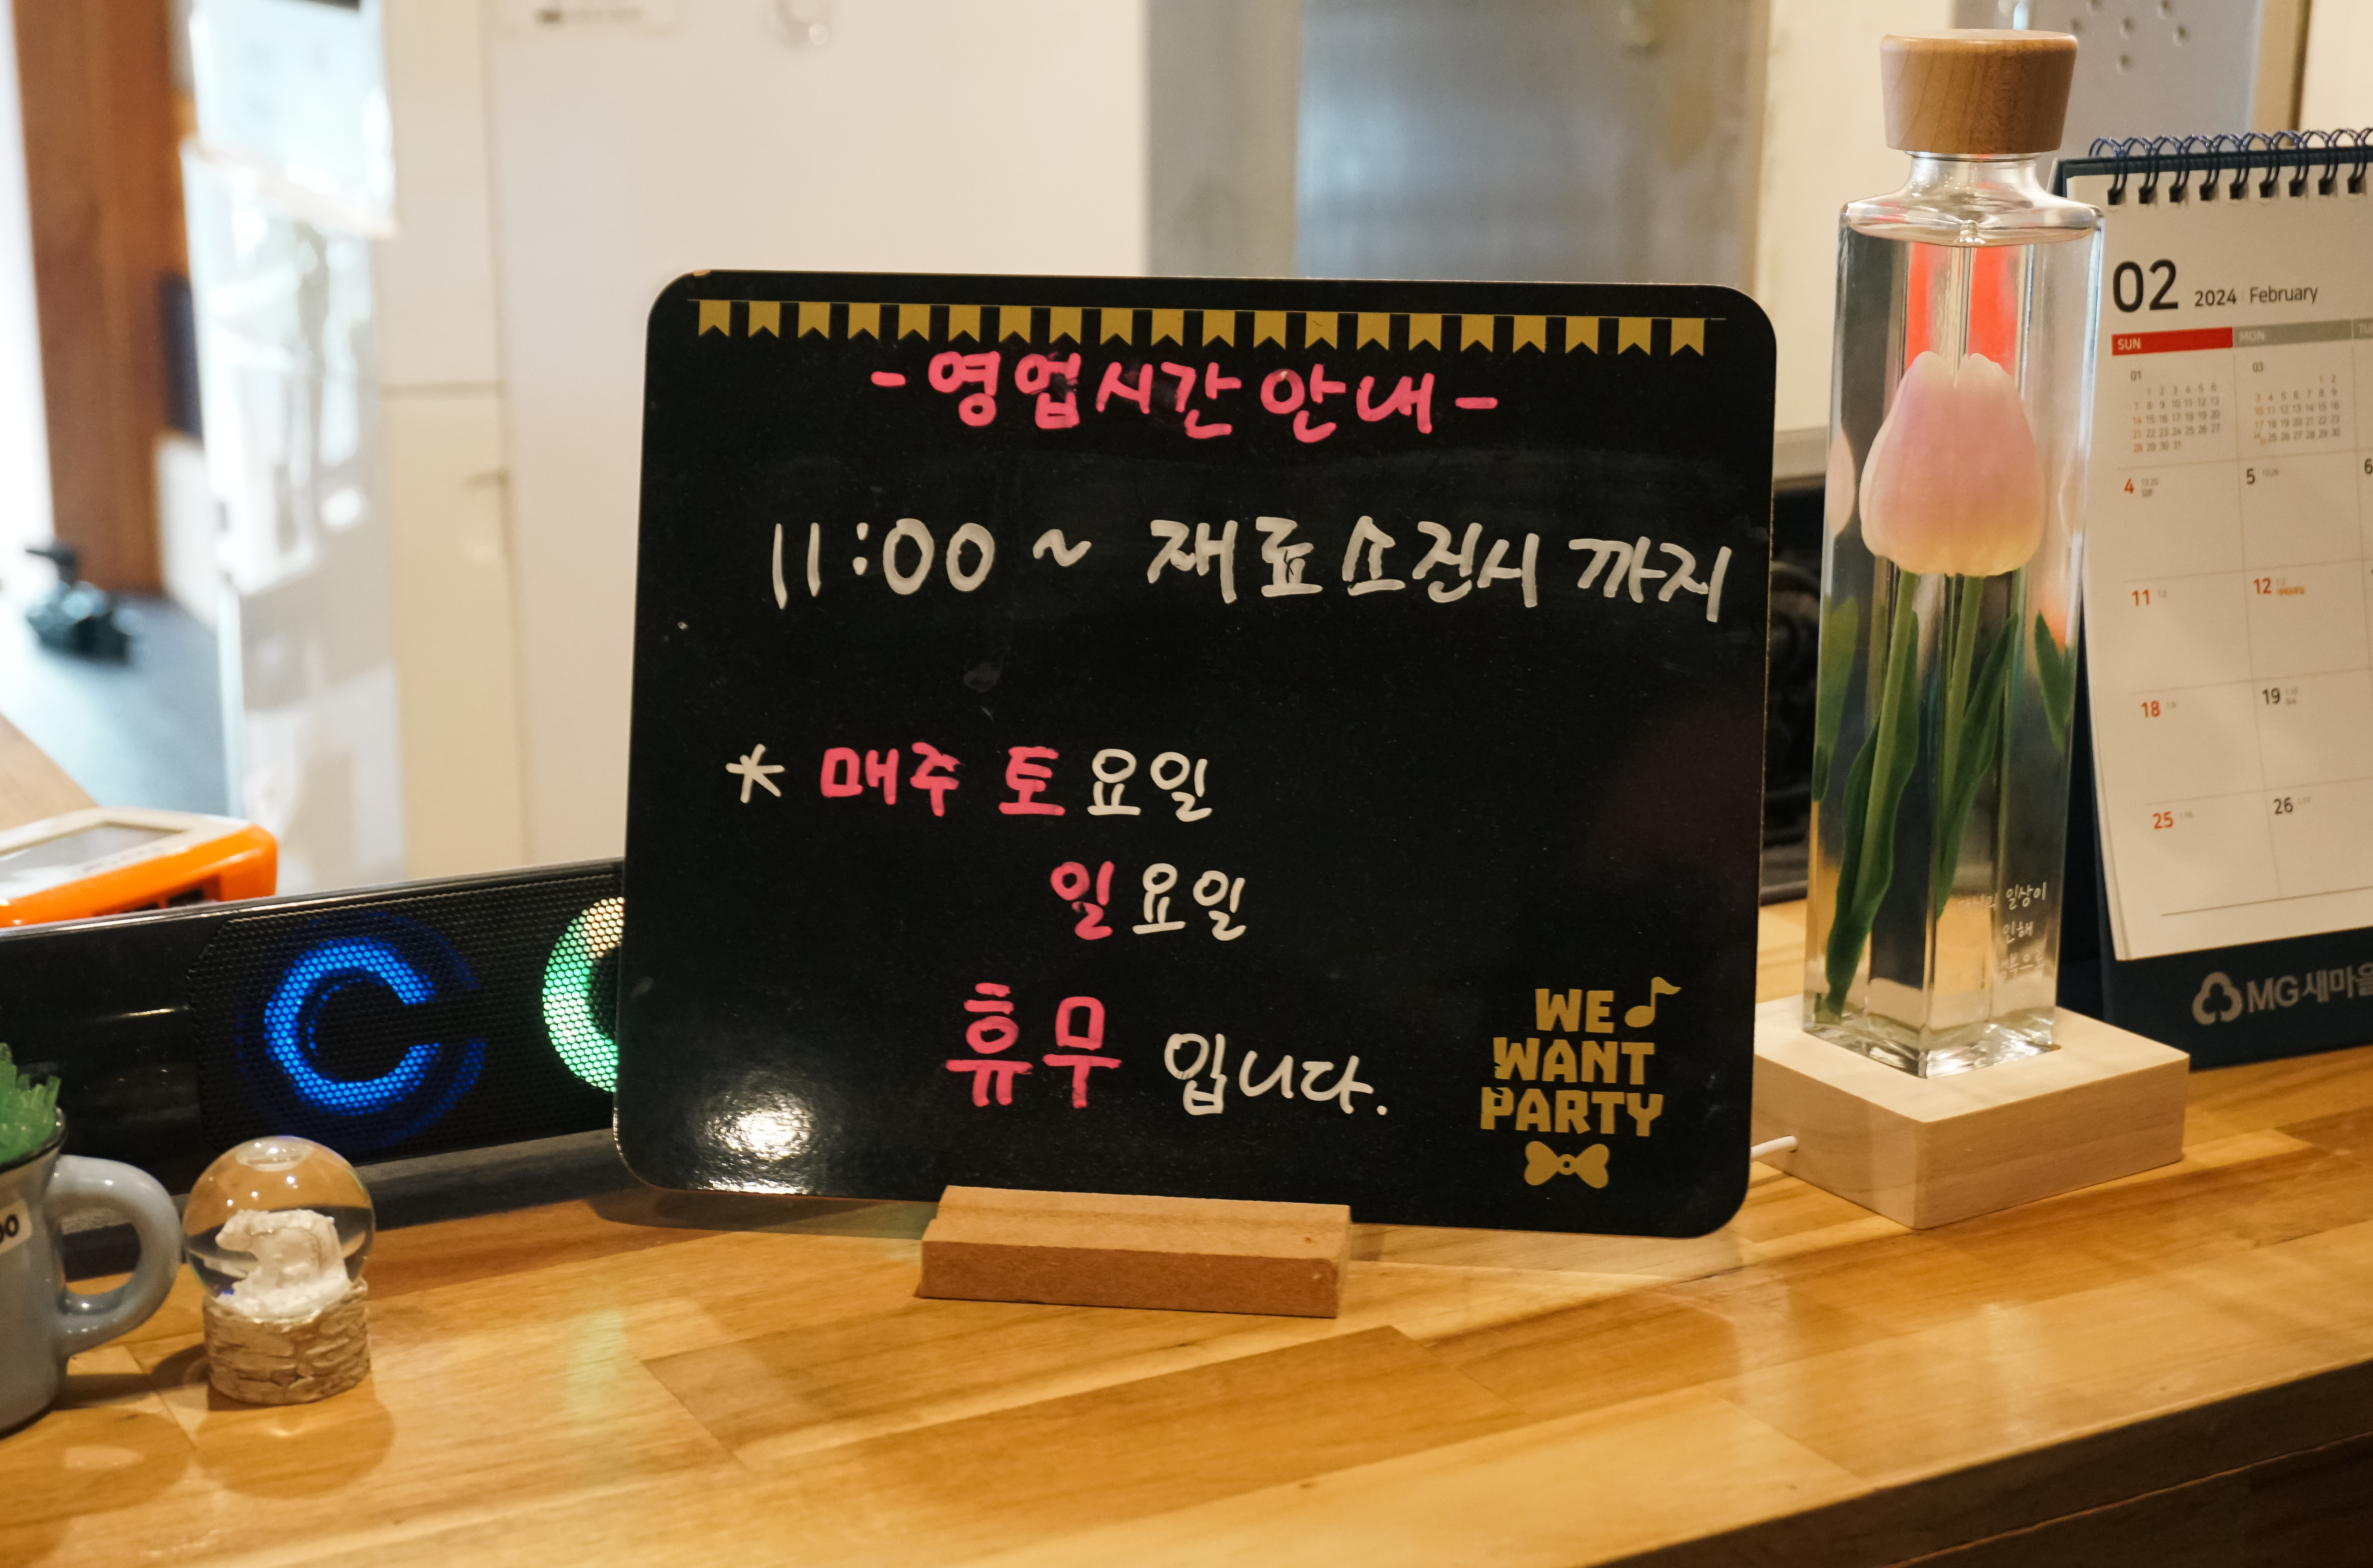 -영업시간 안내-
11:00 ~ 재료소진시 까지
* 매주 토요일
일요일
휴무 입니다.
WE
WANT
PARTY
02 2024 February
SUN MON
01 03
4 5 6
11 12
18 19
25 26
MG새마을
일상이
인해
00